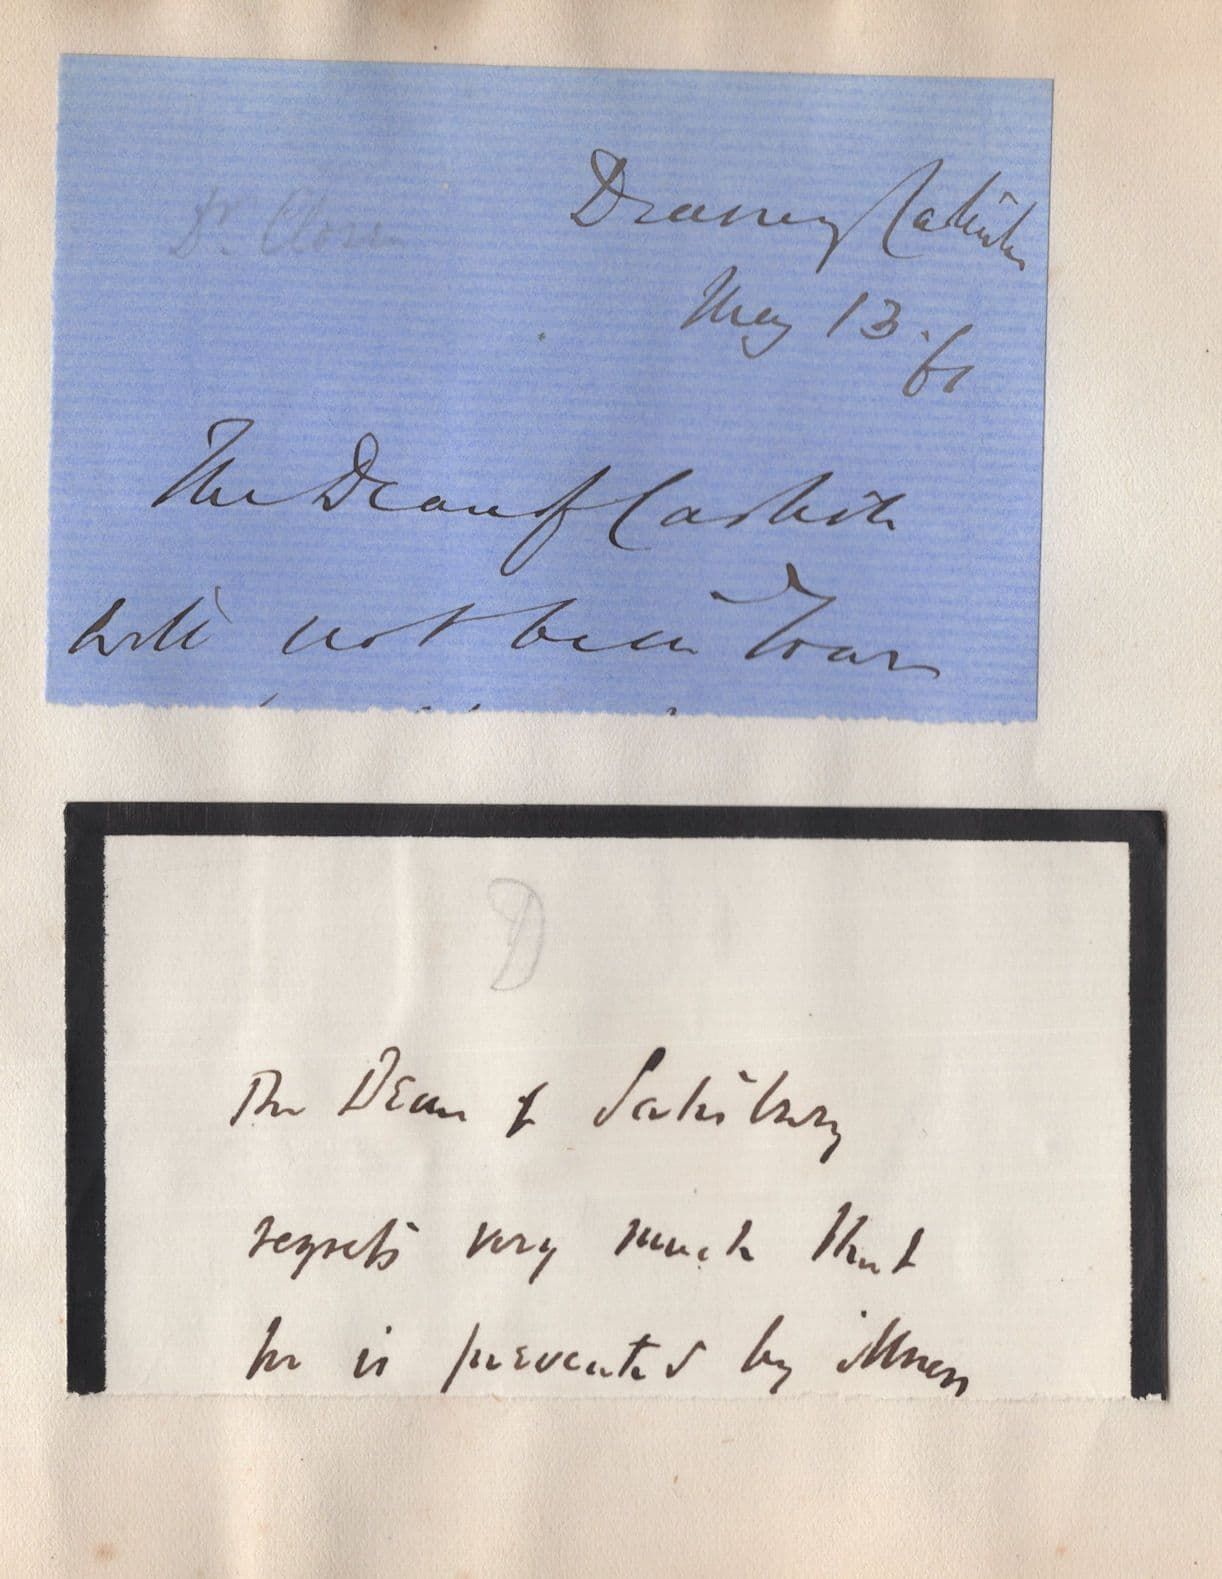 Dr. Close
Deanery Carlisle
May 13. 61
The Dean of Carlisle
will not be in Town
D
The Dean of Salisbury
regrets very much that
he is prevented by illness